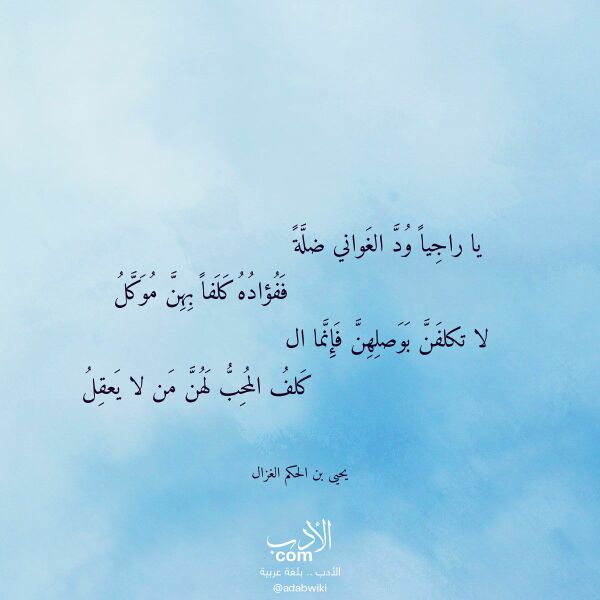 يا راجِياً وُدَّ الغَواني ضلَّةً
فَفُؤادُهُ كَلَفاً بِهِنَّ مُوَكَّلُ
لا تكلفَنَّ بَوَصلِهِنَّ فَإِنَّما ال
كَلفُ المُحِبُّ لَهُنَّ مَن لا يَعقِلُ
يحيى بن الحكم الغزال
الأدب
com
الأدب .. بلغة عربية
@adabwiki